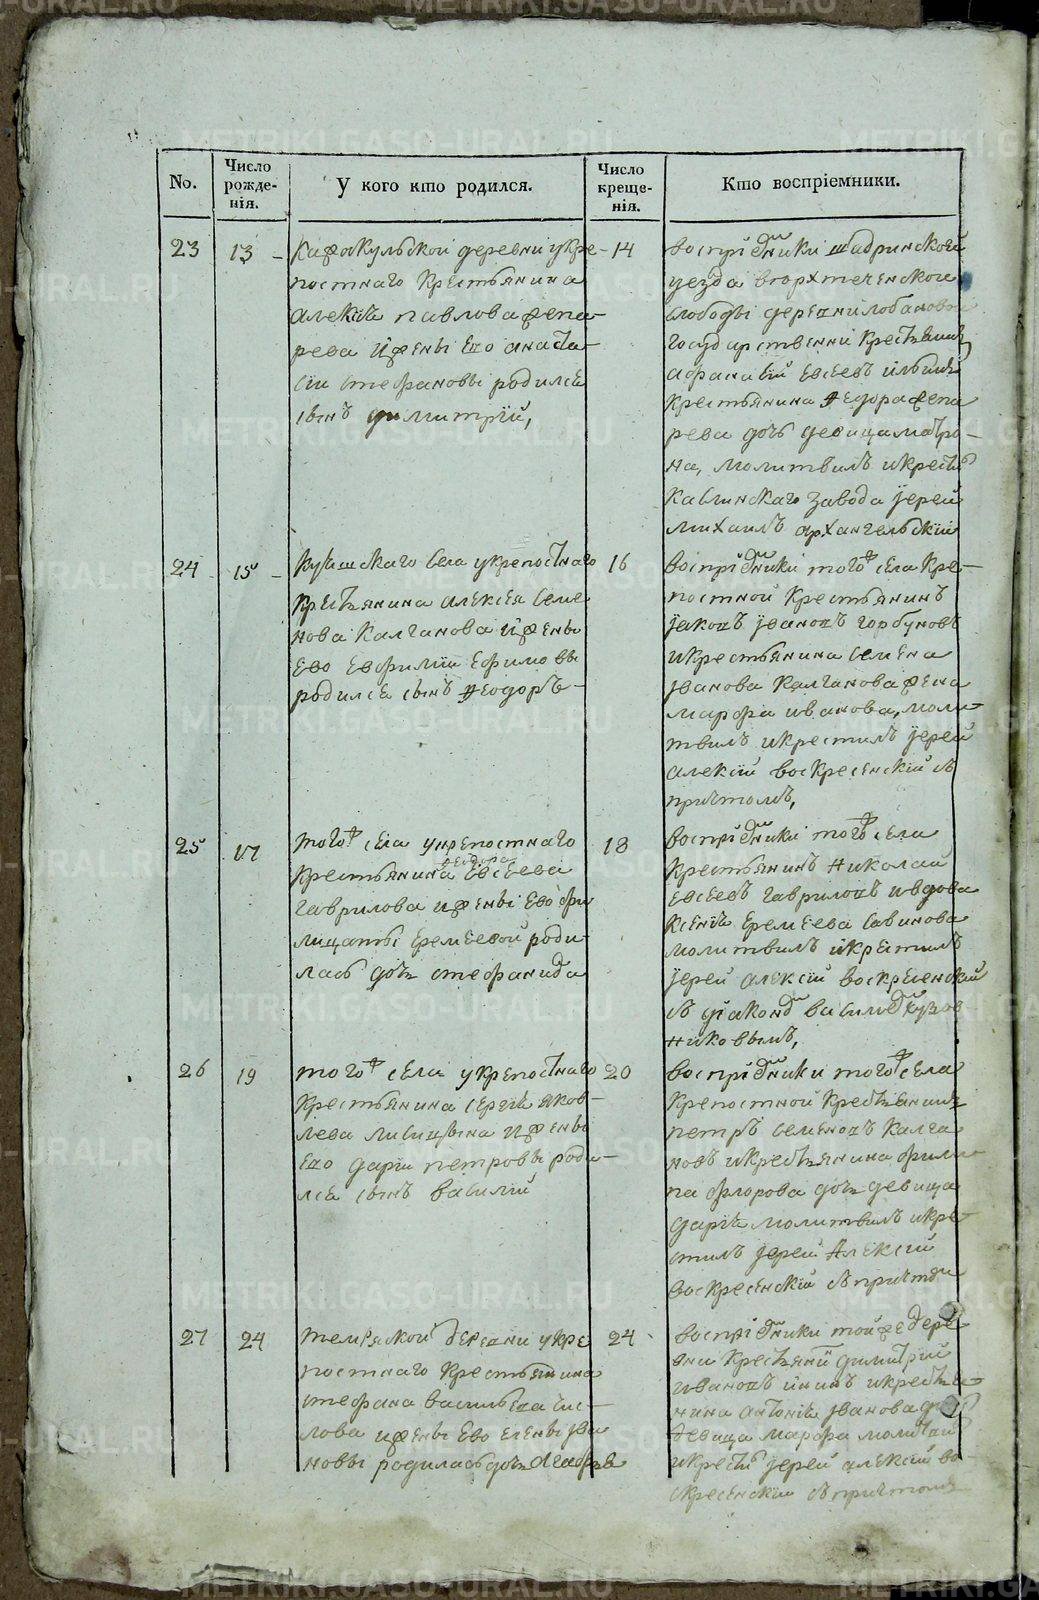 No.
Число рожде-нія.
У кого кто родился.
Число креще-нія.
Кто воспріемники.
23
13
деревни укре-
постнаго крестьянина
алексѣя павлова
рева и жены ево анаста-
сіи стефановы родился
сынъ димитрій,
14
воспріемники шадринской
уезда верхтеченской
слободы деревни лобановой
государственни крестьянинъ
афанасій евсеевъ
крестьянина Федора
рева дочь девица матро-
на, молитвилъ и крести
каслинскаго завода іерей
михаилъ архангельскій
24
15
села у крепостнаго
крестьянина алексея семе
нова калганова и жены
ево евфиміи ефимовы
родился сынъ Феодоръ
16
воспріемники тогож села кре-
постной крестьянинъ
іаковъ івановъ горбуновъ
и крестьянина семена
іванова калганова жена
марфа иванова, моли-
твилъ и крестилъ іерей
алексій воскресенскій съ
причтомъ,
25
17
тогож села у крепостнаго
феодора
крестьянина евсеева
гаврилова и жены ево фи
лицаты еремеевой роди-
лась дочь стефанида
18
воспріемники тогож села
крестьянинъ николай
евсеевъ гавриловъ и вдова
ксенія еремеева савинова
молитвилъ и крестилъ
іерей алексій воскресенскій
съ діаконом васильем кузов
никовымъ,
26
19
тогож села у крепостнаго
крестьянина сергія яков-
лева лисицына и жены
ево даріи петровы роди-
лся сынъ василій
20
воспріемники тогож села
крепостной крестьянинъ
петръ семеновъ калга
новъ и крестьянина фили
па флорова дочь девица
дарія молитвилъ и кре-
стилъ іерей Алексій
воскресенскій с причтом
27
24
деревни у кре
постнаго крестьянина
стефана васильева сус-
лова и жены ево елены іва
новы родилась дочь Агафія
24
воспріемники той же дере
вни крестьянин димитрій
ивановъ и крестья-
нина антонія іванова дочь
девица марфа молитвил
и крести іерей алексій во-
скресенскій с причтомъ
METRIKI.GASO-URAL.RU